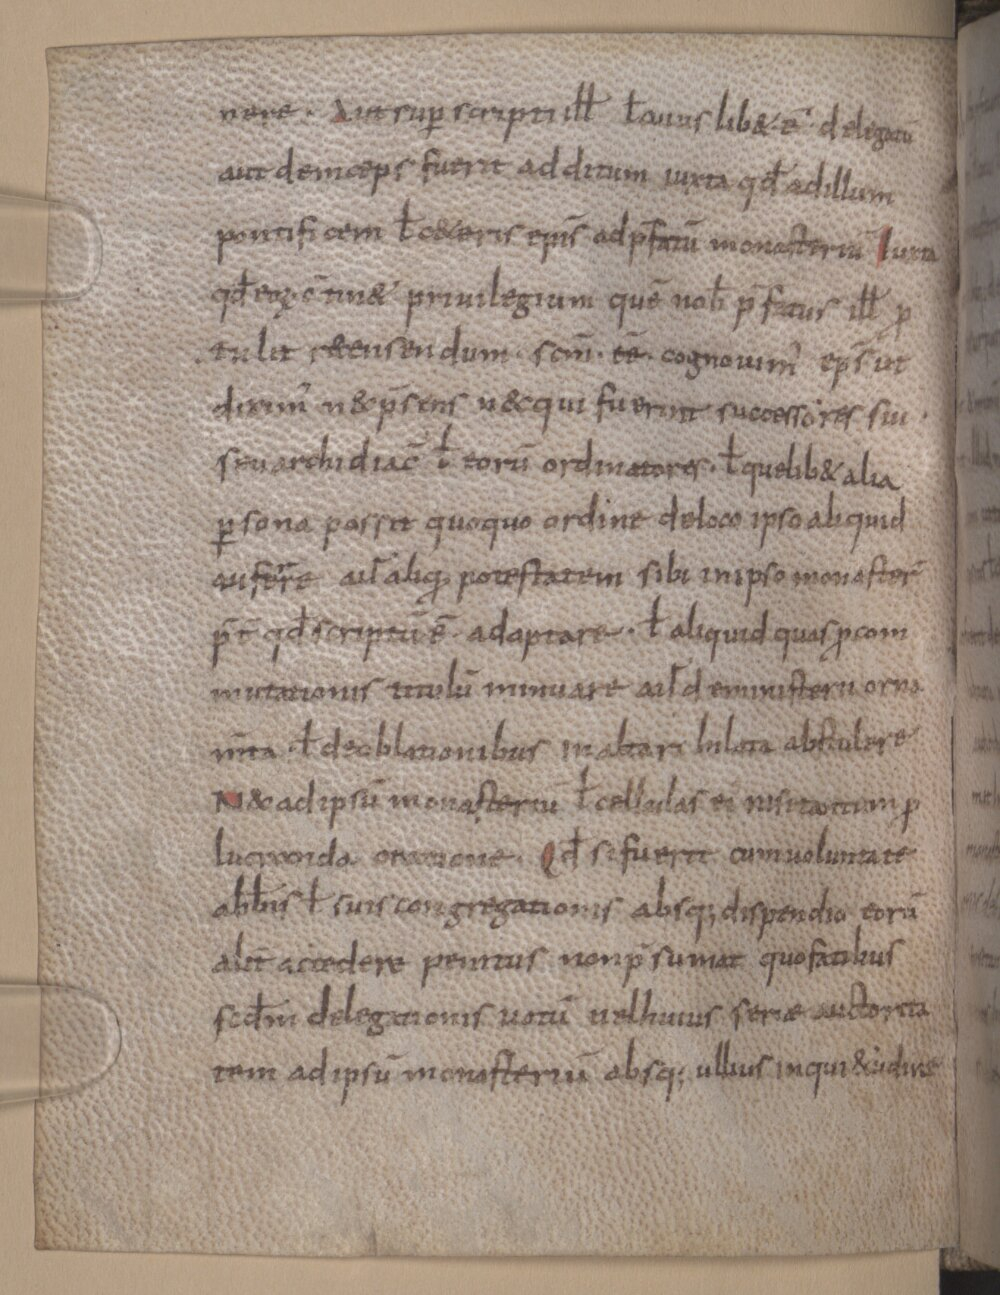 nere. Aut sup̄scripti ill̄ ł cuius lib& ē delegatū
aut deinceps fuerit additum iuxta qđ ad illum
pontificem ł c&eris ep̄is ad p̄fatū monasteriū Iuxta
qđ eoꝝ c̄tin& privilegium quē nob̄ p̄fatus ill̄ ꝓ
tulit r&ensendum. scm̄ cognovim᾽ ep̄s ut
dixim᾽ n& p̄sens n&c qui fuerint successores sui
seu archidiac̄ ł eorū ordinatores. ł quelib& alia
ꝑsona possit quoquo ordine de loco ipso aliquid
auferre aut aliqꝫ potestatem sibi in ipso monaster̄
p̄t qđ scriptū ē. adaptare. ł aliquid quasi ꝓ com
mutationis titulū minuare aut de ministerii orna
m̄ta ł de oblationibus in altari lulata abstulere
N&c ad ipsū monasteriū ł cellulas ei tantum ꝓ
lucranda oratione. Qđ si fuerit cum voluntate
abb̄is ł suis congregationis absqꝫ dispendio eorū
alit̄ accedere penitus non p̄sumat quo fatibus
scđm delegationis votū vel huius seriæ auctorita
tem ad ipsū monasteriū absqꝫ ullius inqui&udine